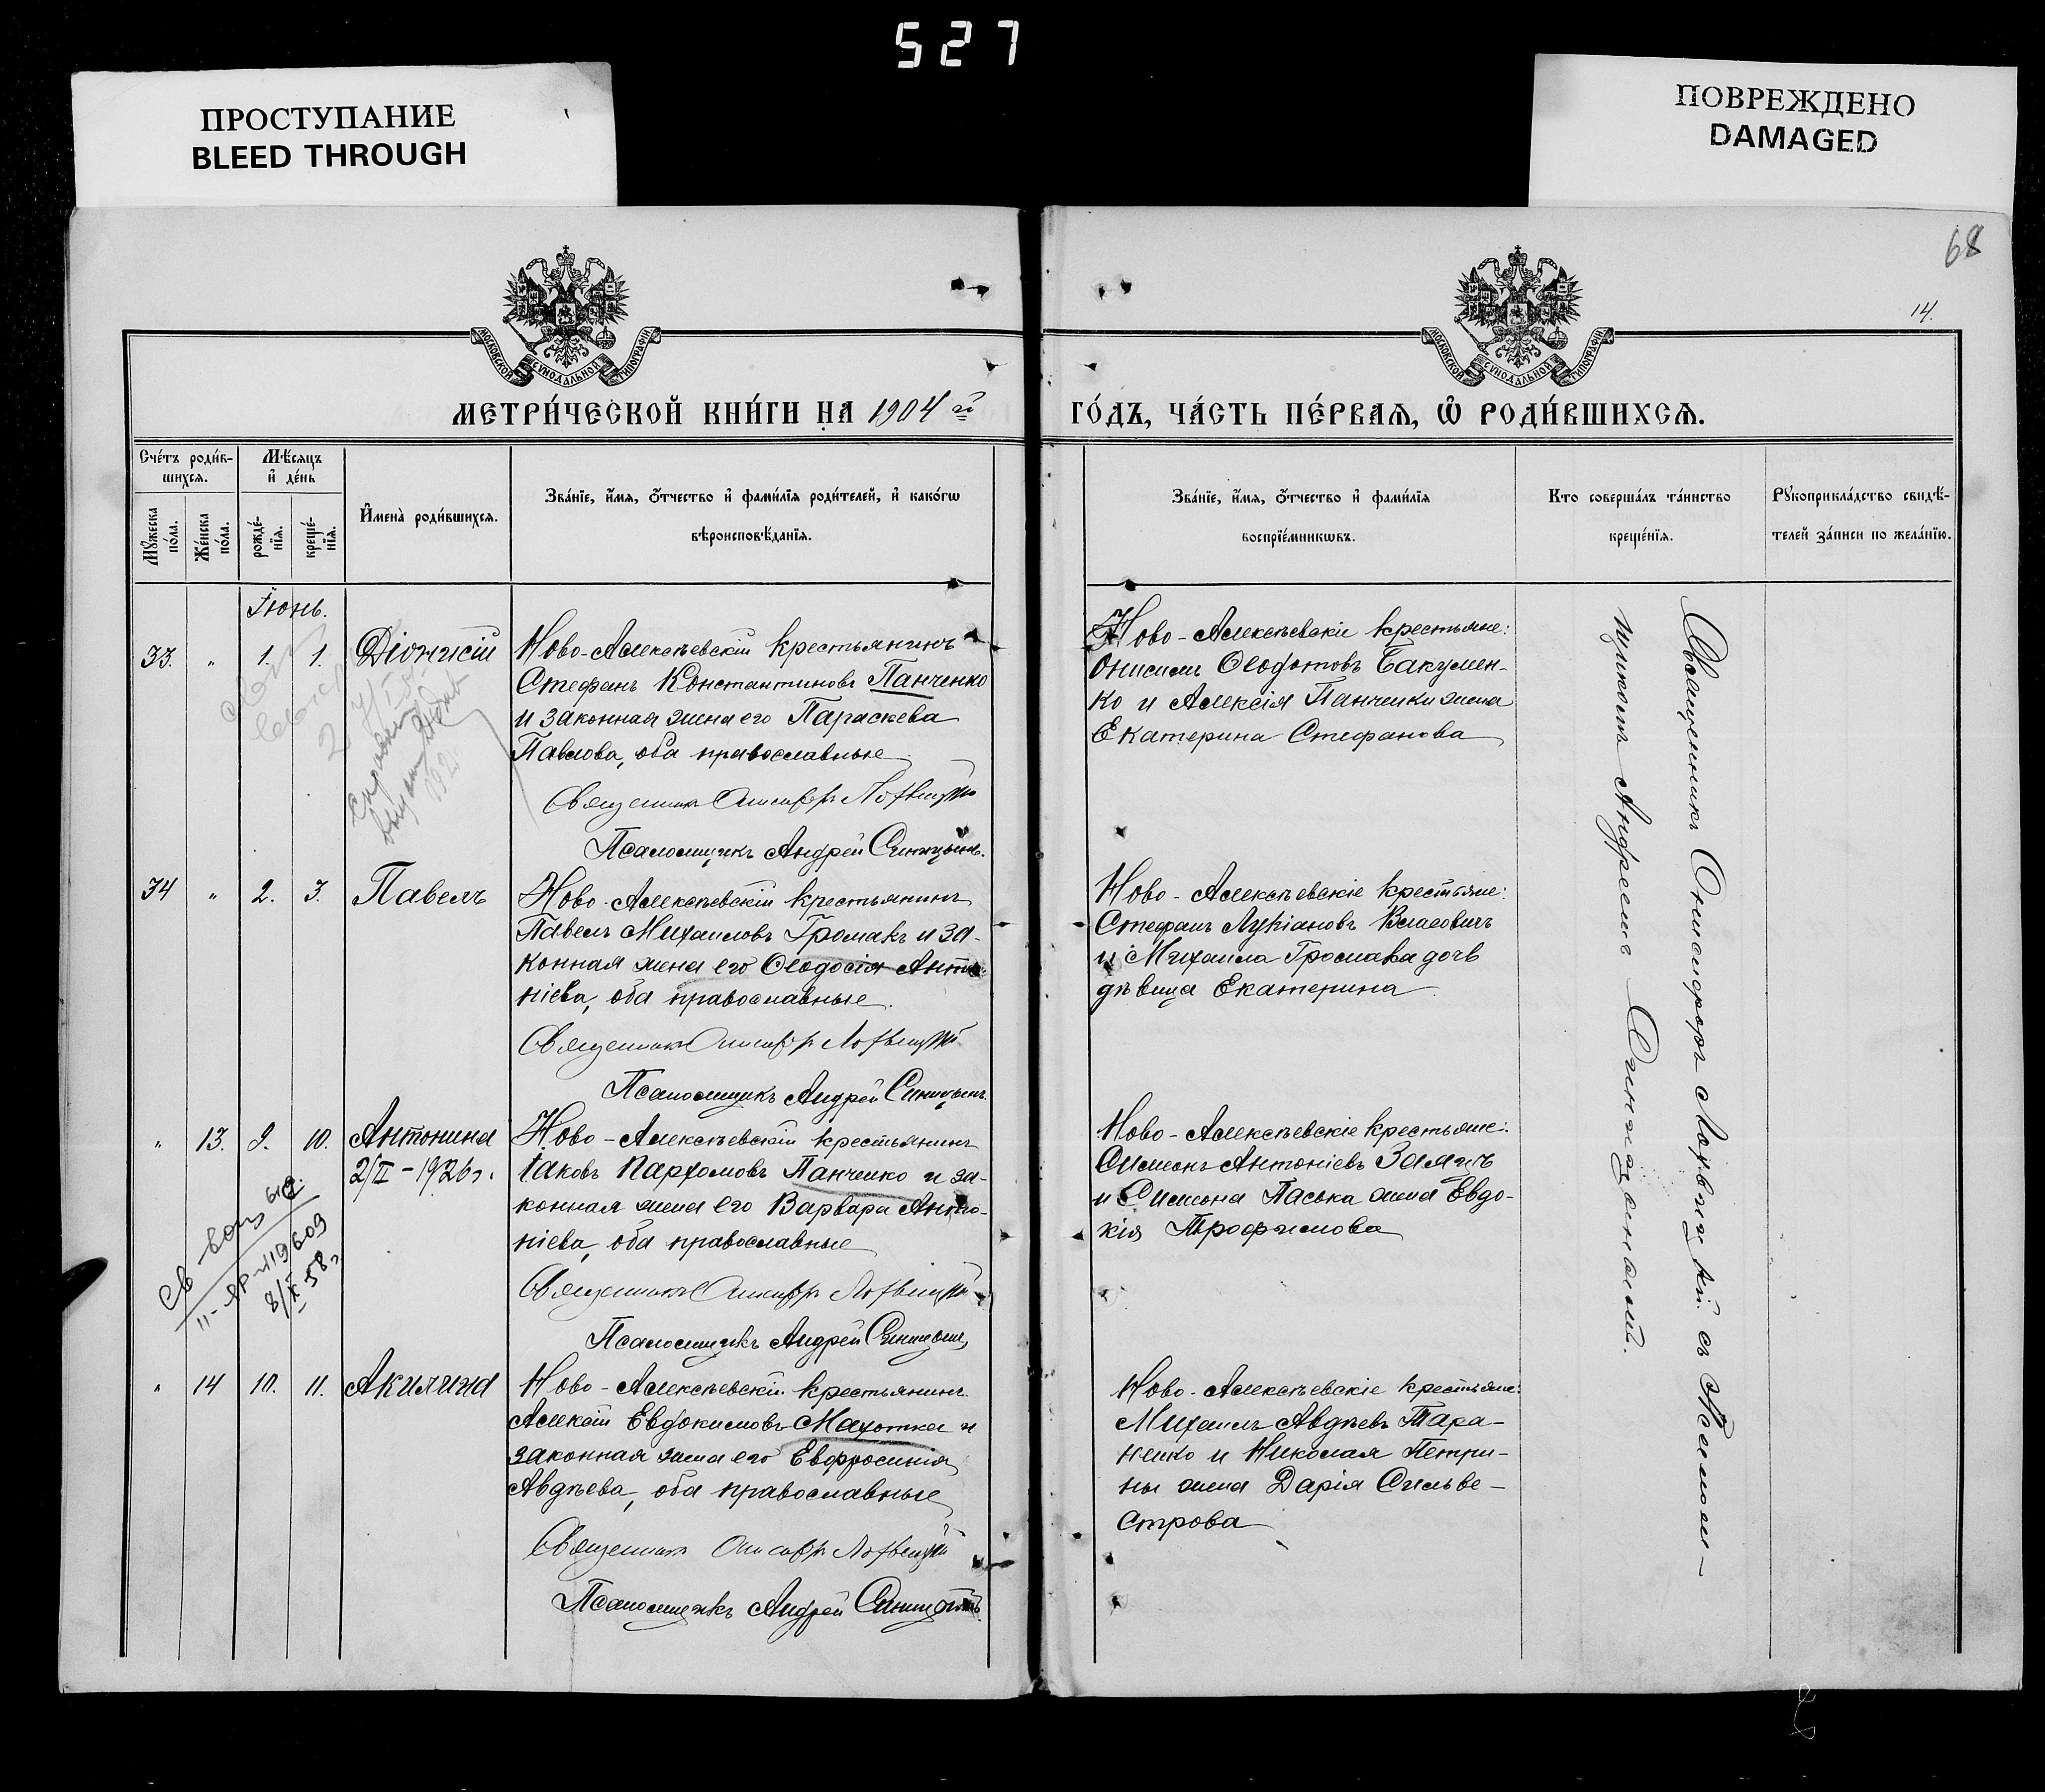 527
ПРОСТУПАНИЕ
BLEED THROUGH
ПОВРЕЖДЕНО
DAMAGED
68
14.
МОСКОВСКОЙ СѴНОДАЛЬНОЙ ТИПОГРАФІИ
МОСКОВСКОЙ СѴНОДАЛЬНОЙ ТИПОГРАФІИ
МЕТРИ́ЧЕСКОЙ КНИ́ГИ НА 1904 й
ГО́ДЪ, ЧА́СТЬ ПЕ́РВАЯ, Ѡ҆ РОДИ́ВШИХСЯ.
Сче́тъ роди́в-
шихся.
Мѣ́сяцъ
и҆ де́нь
Мꙋ́жеска
по́ла.
Же́нска
по́ла.
рожде́-
нїя.
креще́-
нїя.
И҆мена̀ роди́вшихся.
Зва́нїе, и҆́мя, ѻ҆́тчество и҆ фами́лїя роди́телей, и҆ како́гѡ
вѣроисповѣ́данїя.
Зва́нїе, и҆́мя, ѻ҆́тчество и҆ фами́лїя
воспрїе́мникѡвъ.
Кто соверша́лъ та́инство
креще́нїя.
Рꙋкоприкла́дство свидѣ́-
телей за́писи по жела́нїю.
Іюнь.
33. " 1. 1. Діонисій
Ново-Алексѣевскій крестьянинъ
Стефанъ Константиновъ Панченко
и законная жена его Параскева
Павлова, оба православные
Священникъ Онисифоръ Логвицкій
Псаломщикъ Андрей Синицынъ.
Ново-Алексѣевскіе крестьяне:
Онисимъ Ѳеодотовъ Бакумен-
ко и Алексія Панченки жена
Екатерина Стефанова
34 " 2. 3. Павелъ
Ново-Алексѣевскій крестьянинъ
Павелъ Михаиловъ Громакъ и за-
конная жена его Ѳеодосія Анто-
ніева, оба православные.
Священникъ Онисифоръ Логвицкій
Псаломщикъ Андрей Синицынъ.
Ново-Алексѣевскіе крестьяне:
Стефанъ Лукіановъ Власовичъ
и Михаила Громака дочь
дѣвица Екатерина
" 13. 9. 10. Антонина
2/II-1926г.
8/X 58г
Ново-Алексѣевскій крестьянинъ
Іаковъ Пархомовъ Панченко и за-
конная жена его Варвара Анто-
ніева, оба православные
Священникъ Онисифоръ Логвицкій
Псаломщикъ Андрей Синицынъ
Ново-Алексѣевскіе крестьяне:
Симеонъ Антоніевъ
и Симеона Паська жена Евдо-
кія Трофимова
" 14 10. 11. Акилина
Ново-Алексѣевскій крестьянинъ
Алексій Евдокимовъ Махотка и
законная жена его Евфросинія
Авдѣева, оба православные
Священникъ Онисифоръ Логвицкій
Псаломщикъ Андрей Синицынъ.
Ново-Алексѣевскіе крестьяне:
Михаилъ Авдѣевъ Тара-
ненко и Николая Петри-
ны жена Дарія Сильве-
строва
Священникъ Онисифоръ Логвицкій съ Псалом-
щикомъ Андреемъ Синицынымъ.